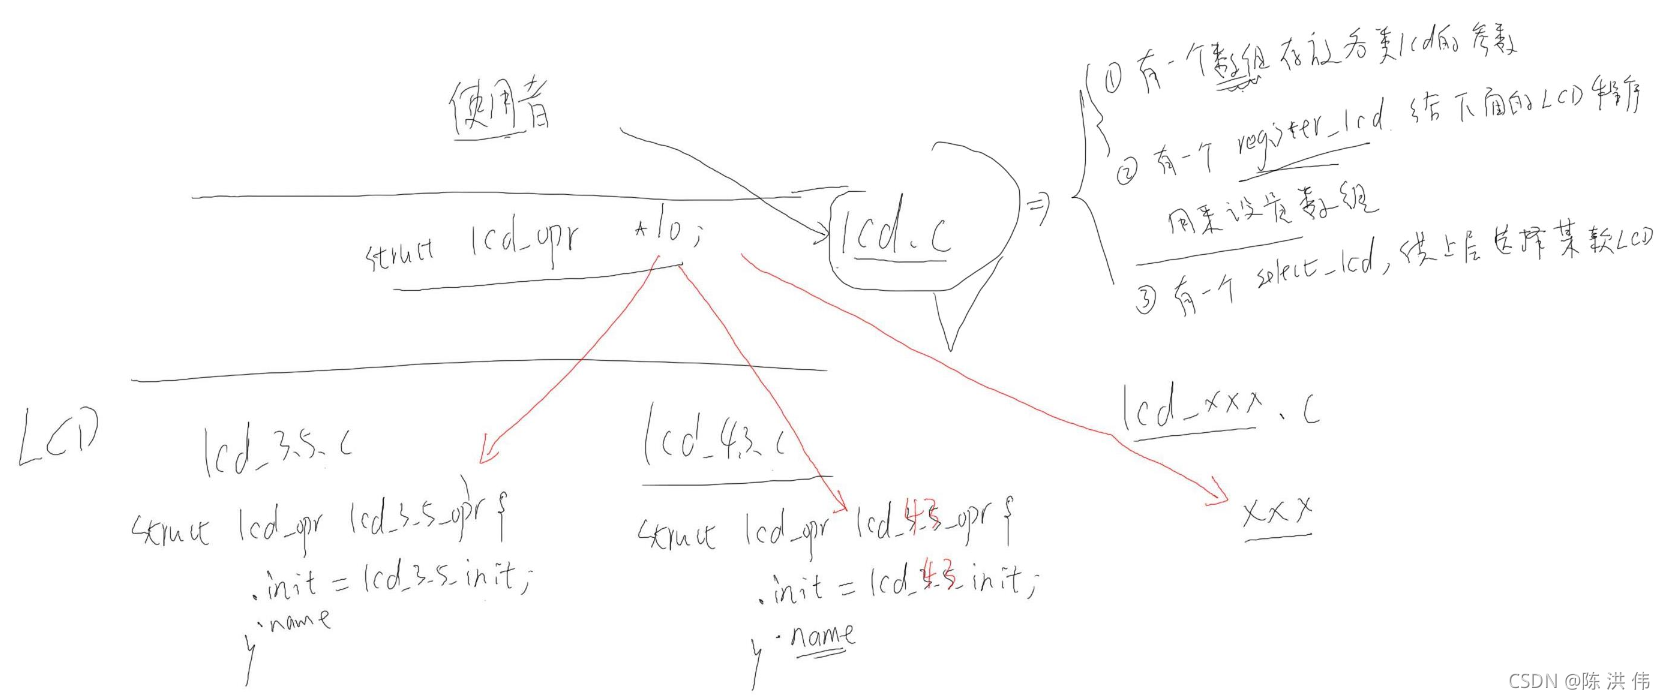 使用者
① 有一个数组存放各类lcd的参数
② 有一个 register_lcd 给下面的LCD程序
用来设置数组
③ 有一个 select_lcd, 供上层选择某款LCD
struct lcd_opr *lo;
lcd.c
⇒
LCD
lcd_3.5.c
lcd_4.3.c
lcd_xxx.c
struct lcd_opr lcd_3_5_opr {
.init = lcd_3_5_init;
.name
}
struct lcd_opr lcd_4.3_opr {
.init = lcd_4.3_init;
.name
}
xxx
CSDN @陈 洪 伟